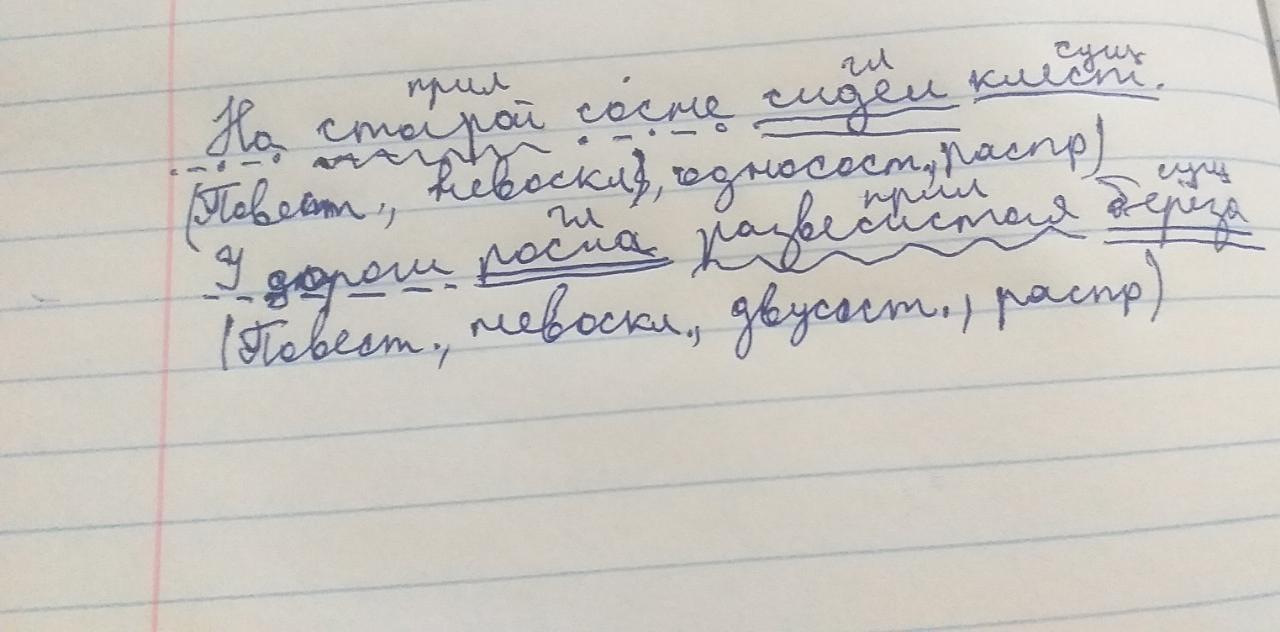 прил гл сущ
На старой сосне сидел клест.
(Повест., невоскл), односост., распр)
гл прил сущ
У дороги росла развесистая береза
(Повест., невоскл., двусост., распр)